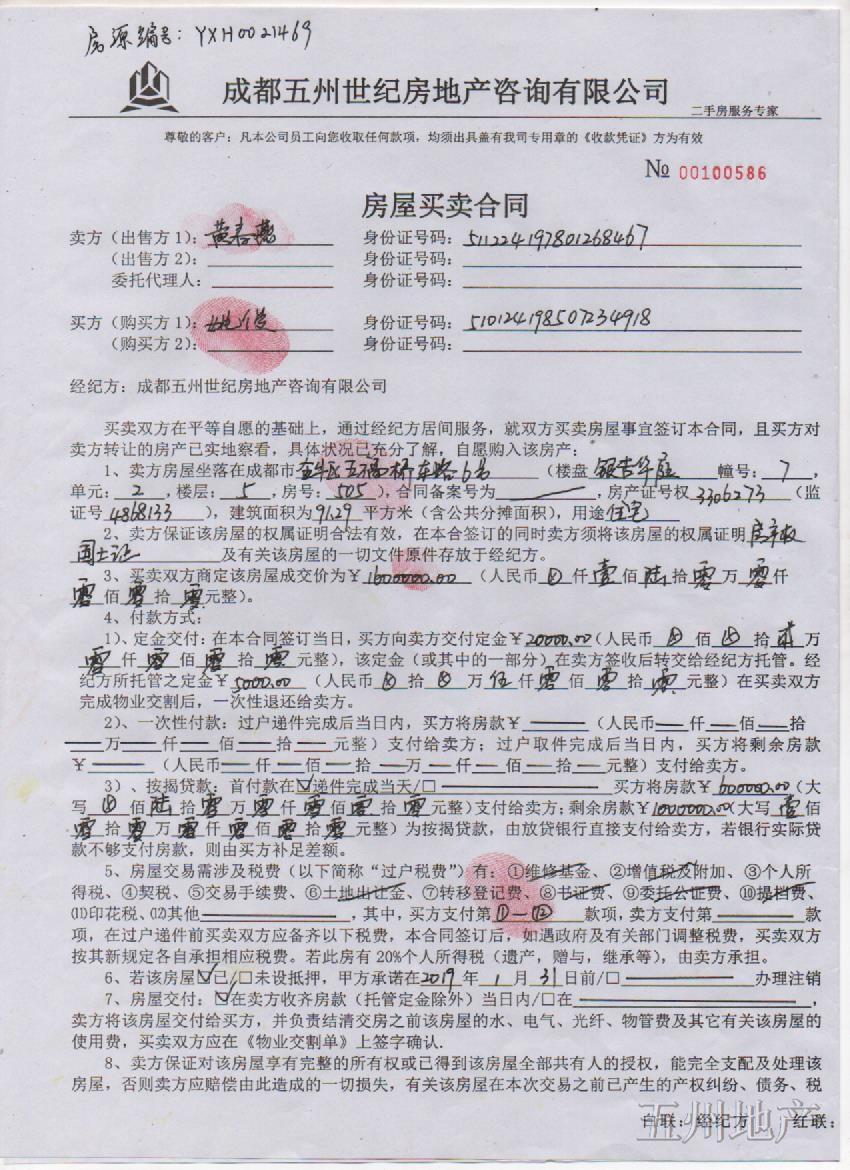 房源编号：YXH0021469
成都五州世纪房地产咨询有限公司
二手房服务专家
尊敬的客户：凡本公司员工向您收取任何款项，均须出具盖有我司专用章的《收款凭证》方为有效
№ 00100586
房屋买卖合同
卖方（出售方1）：黄春燕 身份证号码：511224197801268467
（出售方2）： 身份证号码：
委托代理人： 身份证号码：
买方（购买方1）： 身份证号码：510124198507234918
（购买方2）： 身份证号码：
经纪方：成都五州世纪房地产咨询有限公司
买卖双方在平等自愿的基础上，通过经纪方居间服务，就双方买卖房屋事宜签订本合同，且买方对
卖方转让的房产已实地察看，具体状况已充分了解，自愿购入该房产：
1、卖方房屋坐落在成都市金牛区五福桥东路6号（楼盘 银杏华庭 幢号：7，
单元：2，楼层：5，房号：505），合同备案号为 ，房产证号权 3306273（监
证号 4868133 ），建筑面积为 91.29 平方米（含公共分摊面积），用途 住宅
2、卖方保证该房屋的权属证明合法有效，在本合签订的同时卖方须将该房屋的权属证明 房产权
国土证 及有关该房屋的一切文件原件存放于经纪方。
3、买卖双方商定该房屋成交价为￥1600000.00（人民币 仟壹佰陆拾零万零仟
零佰零拾零元整）。
4、付款方式：
1）、定金交付：在本合同签订当日，买方向卖方交付定金￥20000.00（人民币 佰 拾贰万
零仟零佰零拾零元整），该定金（或其中的一部分）在卖方签收后转交给经纪方托管。经
纪方所托管之定金￥5000.00（人民币 拾 万伍仟零佰零拾零元整）在买卖双方
完成物业交割后，一次性退还给卖方。
2）、一次性付款：过户递件完成后当日内，买方将房款￥——（人民币—仟—佰—拾
—万—仟—佰—拾—元整）支付给卖方；过户取件完成后当日内，买方将剩余房款
￥——（人民币—仟—佰—拾—万—仟—佰—拾—元整）支付给卖方。
3）、按揭贷款：首付款在☑递件完成当天/□—— 买方将房款￥600000.00（大
写 佰陆拾零万零仟零佰零拾零元整）支付给卖方；剩余房款￥1000000.00（大写壹佰
零拾零万零仟零佰零拾零元整）为按揭贷款，由放贷银行直接支付给卖方，若银行实际贷
款不够支付房款，则由买方补足差额。
5、房屋交易需涉及税费（以下简称“过户税费”）有：①维修基金、②增值税及附加、③个人所
得税、④契税、⑤交易手续费、⑥土地出让金、⑦转移登记费、⑧书证费、⑨委托公证费、⑩提档费、
⑪印花税、⑫其他——，其中，买方支付第①—⑫款项，卖方支付第——款
项，在过户递件前买卖双方应备齐以下税费，本合同签订后，如遇政府及有关部门调整税费，买卖双方
按其新规定各自承担相应税费。若此房有20%个人所得税（遗产，赠与，继承等），由卖方承担。
6、若该房屋☑已/□未设抵押，甲方承诺在2019年1月31日前/□—— 办理注销
7、房屋交付：☑在卖方收齐房款（托管定金除外）当日内/□在——，
卖方将该房屋交付给买方，并负责结清交房之前该房屋的水、电气、光纤、物管费及其它有关该房屋的
使用费，买卖双方应在《物业交割单》上签字确认.
8、卖方保证对该房屋享有完整的所有权或已得到该房屋全部共有人的授权，能完全支配及处理该
房屋，否则卖方应赔偿由此造成的一切损失，有关该房屋在本次交易之前已产生的产权纠纷、债务、税
白联：经纪方 红联：
五州地产